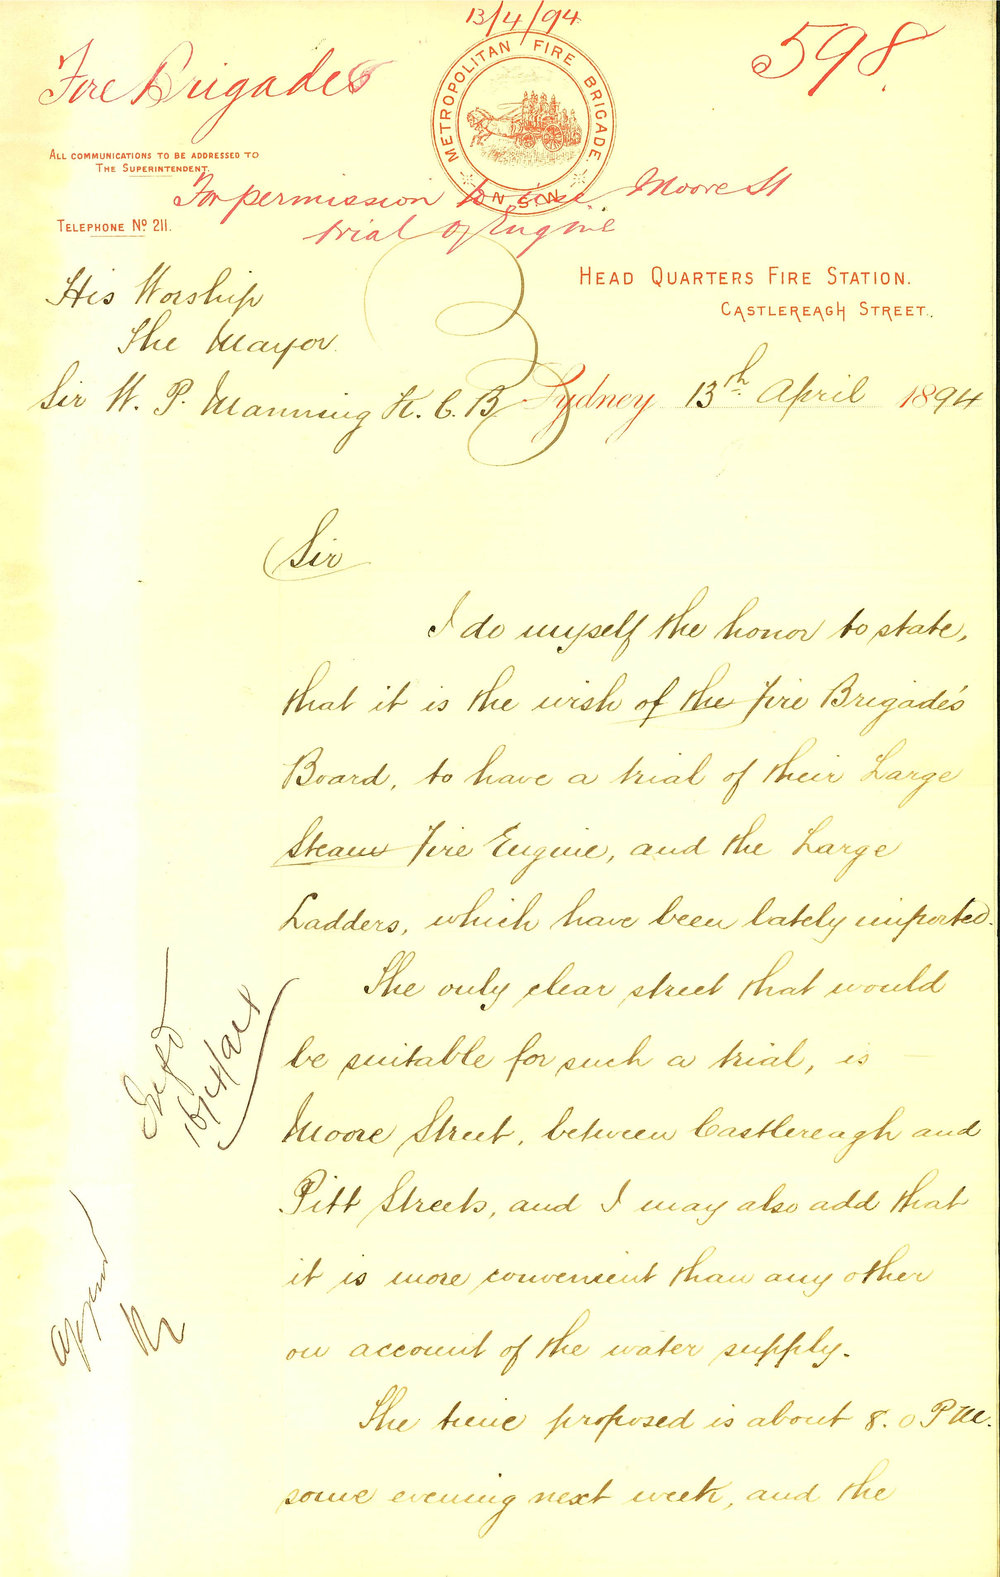 13/4/94
598
Fire Brigades
METROPOLITAN FIRE BRIGADE
N.S.W.
ALL COMMUNICATIONS TO BE ADDRESSED TO
THE SUPERINTENDENT.
For permission to use Moore St
trial of Engine
TELEPHONE No 211.
HEAD QUARTERS FIRE STATION.
CASTLEREAGH STREET.
His Worship
The Mayor
Sir W. P. Manning K. C. B
Sydney 13th April 1894
Sir
I do myself the honor to state,
that it is the wish of the Fire Brigade's
Board, to have a trial of their Large
Steam Fire Engine, and the Large
Ladders, which have been lately imported.
The only clear street that would
be suitable for such a trial, is
Moore Street, between Castlereagh and
Pitt Streets, and I may also add that
it is more convenient than any other
on account of the water supply.
The time proposed is about 8.0 PM.
some evening next week, and the
16/4/94